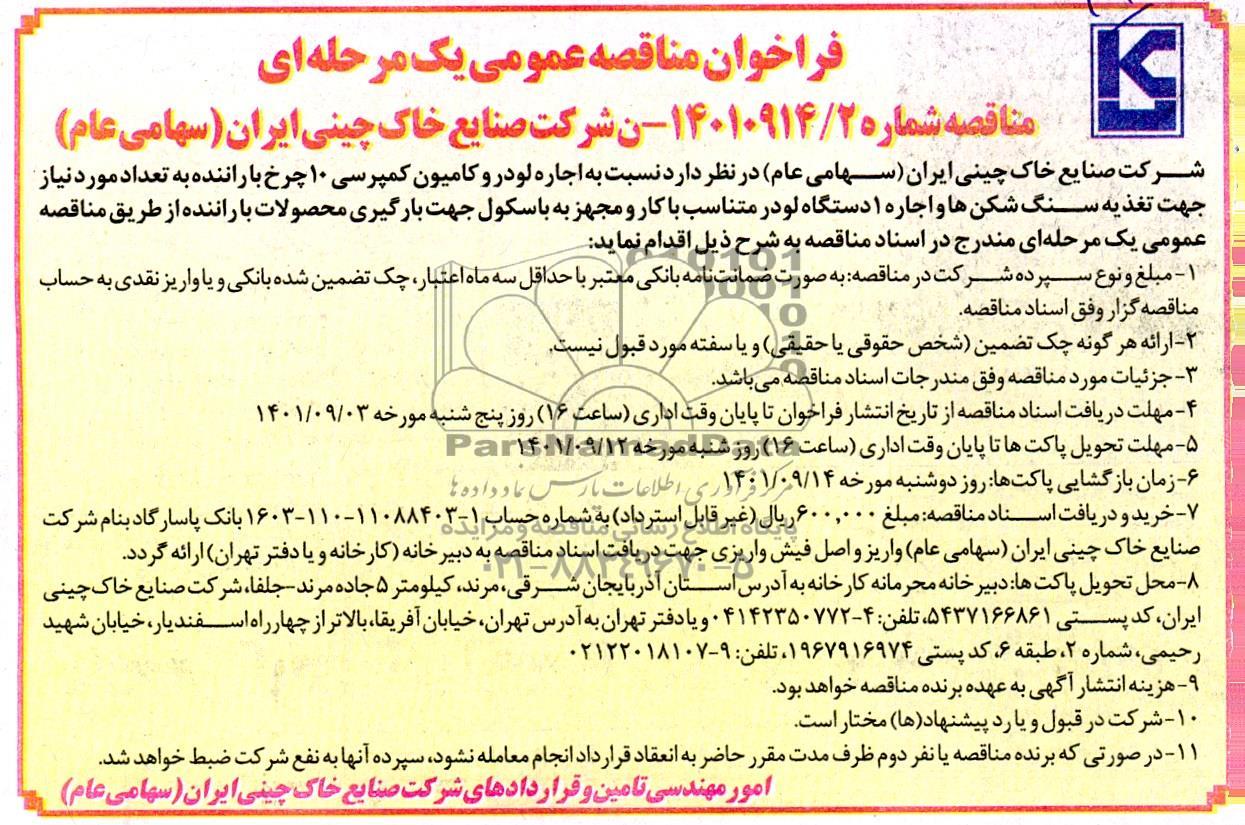 فراخوان مناقصه عمومی یک مرحله‌ای
مناقصه شماره ۱۴۰۱۰۹۱۴/۲-ن شرکت صنایع خاک چینی ایران (سهامی عام)
شرکت صنایع خاک چینی ایران (سهامی عام) در نظر دارد نسبت به اجاره لودر و کامیون کمپرسی ۱۰ چرخ با راننده به تعداد مورد نیاز
جهت تغذیه سنگ شکن ها و اجاره ۱ دستگاه لودر متناسب با کار و مجهز به باسکول جهت بارگیری محصولات با راننده از طریق مناقصه
عمومی یک مرحله‌ای مندرج در اسناد مناقصه به شرح ذیل اقدام نماید:
۱-مبلغ و نوع سپرده شرکت در مناقصه: به صورت ضمانت‌نامه بانکی معتبر با حداقل سه ماه اعتبار، چک تضمین شده بانکی و یا واریز نقدی به حساب
مناقصه گزار وفق اسناد مناقصه.
۲-ارائه هر گونه چک تضمین (شخص حقوقی یا حقیقی) و یا سفته مورد قبول نیست.
۳-جزئیات مورد مناقصه وفق مندرجات اسناد مناقصه می‌باشد.
۴-مهلت دریافت اسناد مناقصه از تاریخ انتشار فراخوان تا پایان وقت اداری (ساعت ۱۶) روز پنج شنبه مورخه ۱۴۰۱/۰۹/۰۳
۵-مهلت تحویل پاکت ها تا پایان وقت اداری (ساعت ۱۶) روز شنبه مورخه ۱۴۰۱/۰۹/۱۲
۶-زمان بازگشایی پاکت‌ها: روز دوشنبه مورخه ۱۴۰۱/۰۹/۱۴
۷-خرید و دریافت اسناد مناقصه: مبلغ ۶۰۰,۰۰۰ ریال (غیر قابل استرداد) به شماره حساب ۱-۱۱۰۸۸۴۰۳-۱۱۰-۱۶۰۳ بانک پاسارگاد بنام شرکت
صنایع خاک چینی ایران (سهامی عام) واریز و اصل فیش واریزی جهت دریافت اسناد مناقصه به دبیرخانه (کارخانه و یا دفتر تهران) ارائه گردد.
۸-محل تحویل پاکت ها: دبیرخانه محرمانه کارخانه به آدرس استان آذربایجان شرقی، مرند، کیلومتر ۵ جاده مرند-جلفا، شرکت صنایع خاک چینی
ایران، کد پستی ۵۴۳۷۱۶۶۸۶۱، تلفن: ۴-۰۴۱۴۲۳۵۰۷۷۲ و یا دفتر تهران به آدرس تهران، خیابان آفریقا، بالاتر از چهارراه اسفندیار، خیابان شهید
رحیمی، شماره ۲، طبقه ۶، کد پستی ۱۹۶۷۹۱۶۹۷۴، تلفن: ۹-۰۲۱۲۲۰۱۸۱۰۷
۹-هزینه انتشار آگهی به عهده برنده مناقصه خواهد بود.
۱۰-شرکت در قبول و یا رد پیشنهاد(ها) مختار است.
۱۱-در صورتی که برنده مناقصه یا نفر دوم ظرف مدت مقرر حاضر به انعقاد قرارداد انجام معامله نشود، سپرده آنها به نفع شرکت ضبط خواهد شد.
امور مهندسی تامین و قراردادهای شرکت صنایع خاک چینی ایران (سهامی عام)
ParsNamadData
مرکز فرآوری اطلاعات پارس نماد داده ها
پایگاه اطلاع رسانی مناقصه و مزایده
۰۲۱-۸۸۳۴۹۶۷۰-۵